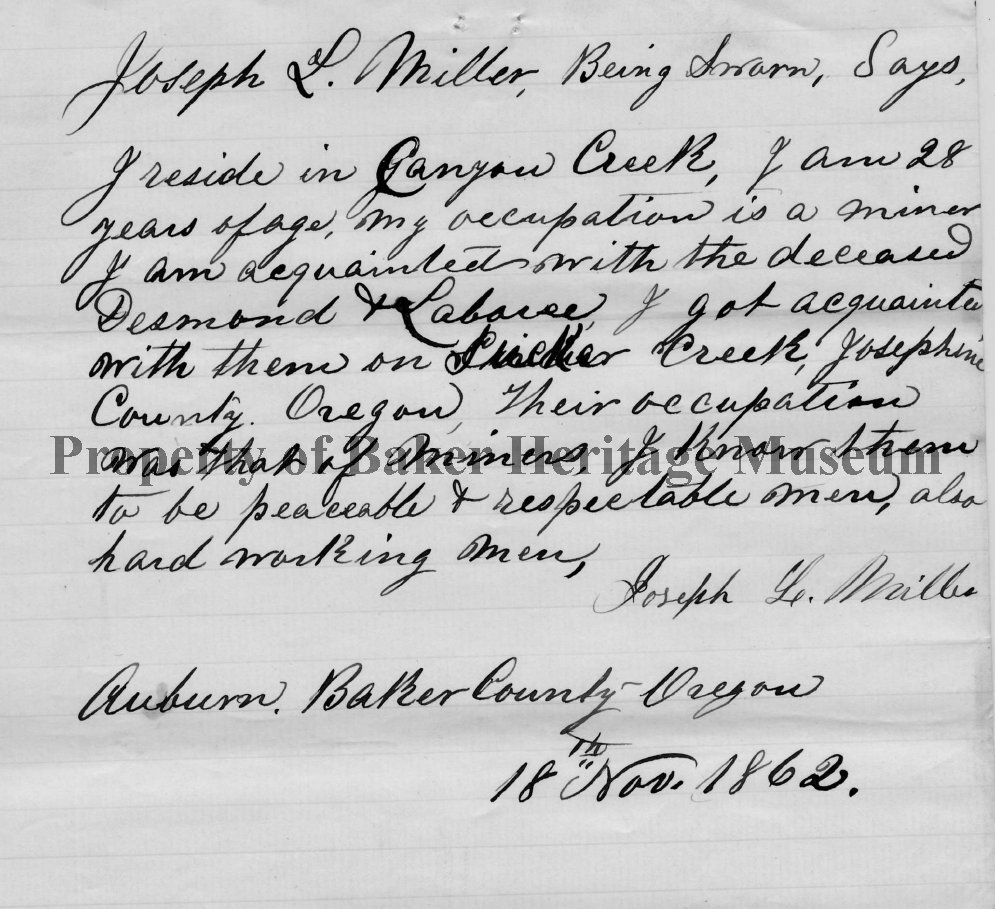 Joseph L. Miller, Being Sworn, Says,
I reside in Canyon Creek, I am 28
years of age, my occupation is a miner
I am acquainted with the deceased
Desmond & Laboree, I got acquainted
with them on Creek, Josephine
County. Oregon, Their occupation
was that of Miners I know them
Property of Baker Heritage Museum
to be peaceable & respectable men, also
hard working men,
Joseph L. Miller
Auburn. Baker County Oregon
18th Nov. 1862.